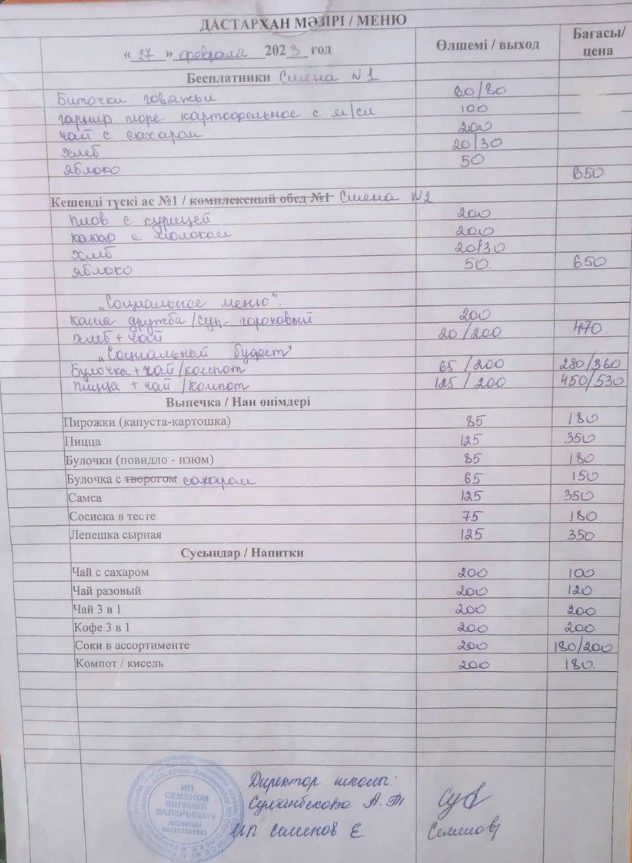 ДАСТАРХАН МӘЗІРІ / МЕНЮ
« 27 » февраля 2023 год Өлшемі / выход Бағасы/ цена
Бесплатники Смена №1
Биточки говяжьи 80/80
гарнир пюре картофельное с м/сл 100
чай с сахаром 200
хлеб 20/30
яблоко 50 650
Кешенді түскі ас №1 / комплексный обед №1 Смена №2
плов с курицей 200
какао с молоком 200
хлеб 20/30
яблоко 50. 650
"Социальное меню".
Каша дружба/суп гороховый 200
хлеб + чай 20/200 470
"Социальный буфет"
Булочка + чай/компот 65/200 280/360
пицца + чай/компот 125/200 450/530
Выпечка / Нан өнімдері
Пирожки (капуста-картошка) 85 180
Пицца 125 350
Булочки (повидло - изюм) 85 180
Булочка с творогом сахаром 65 150
Самса 125 350
Сосиска в тесте 75 180
Лепешка сырная 125 350
Сусындар / Напитки
Чай с сахаром 200 100
Чай разовый 200 120
Чай 3 в 1 200 200
Кофе 3 в 1 200 200
Соки в ассортименте 200 180/200
Компот / кисель 200 180.
Директор школы:
А.Т
ИП Семенов Е Семенов
ИП
СЕМЕНОВ
ЕВГЕНИЙ
ВАЛЕРЬЕВИЧ